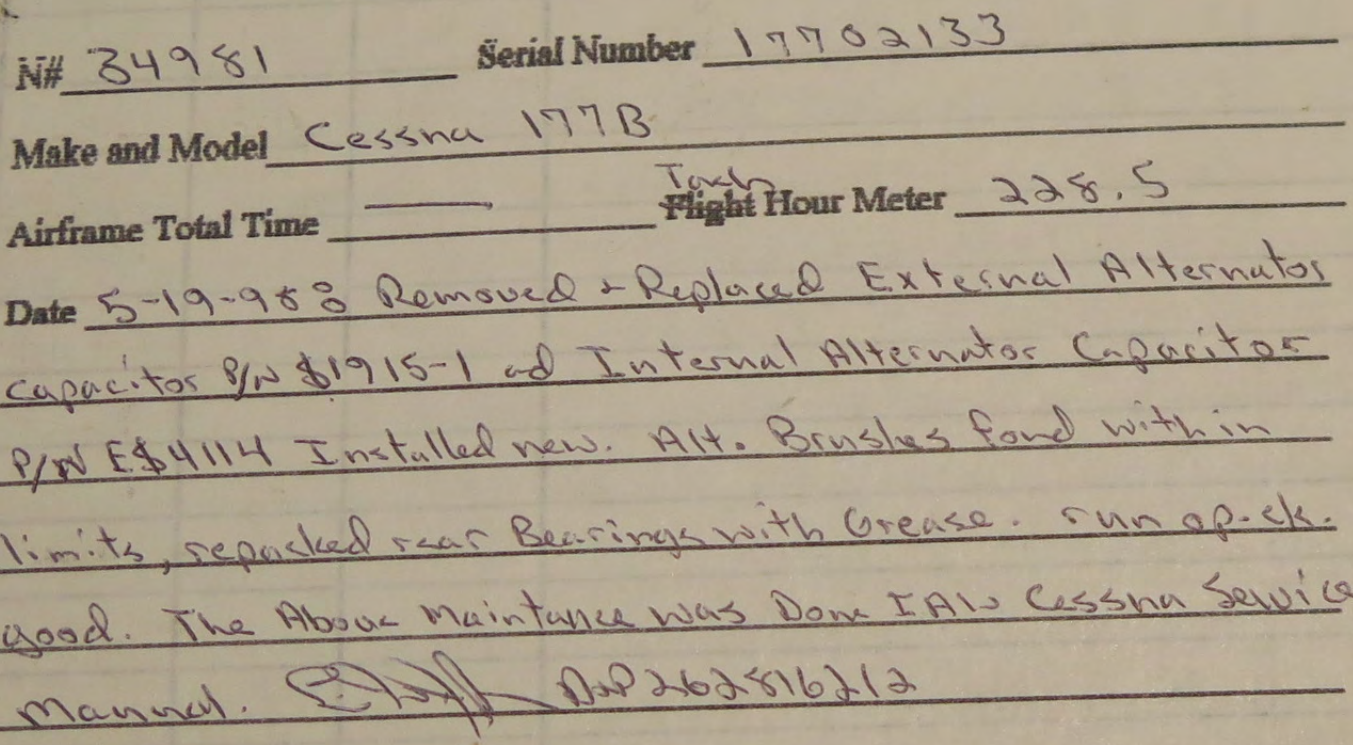 N# 34981 Serial Number 17702133
Make and Model Cessna 177B
Tach
Airframe Total Time — Flight Hour Meter 228.5
Date 5-19-988 Removed + Replaced External Alternator
capacitor P/N $1915-1 ad Internal Alternator Capacitor
P/N E$4114 Installed new. Alt. Brushes fond within
limits, repacked rear Bearings with Grease. run op-ck.
good. The Above Maintance was Done IAW Cessna Service
Manual. A&P 262816212